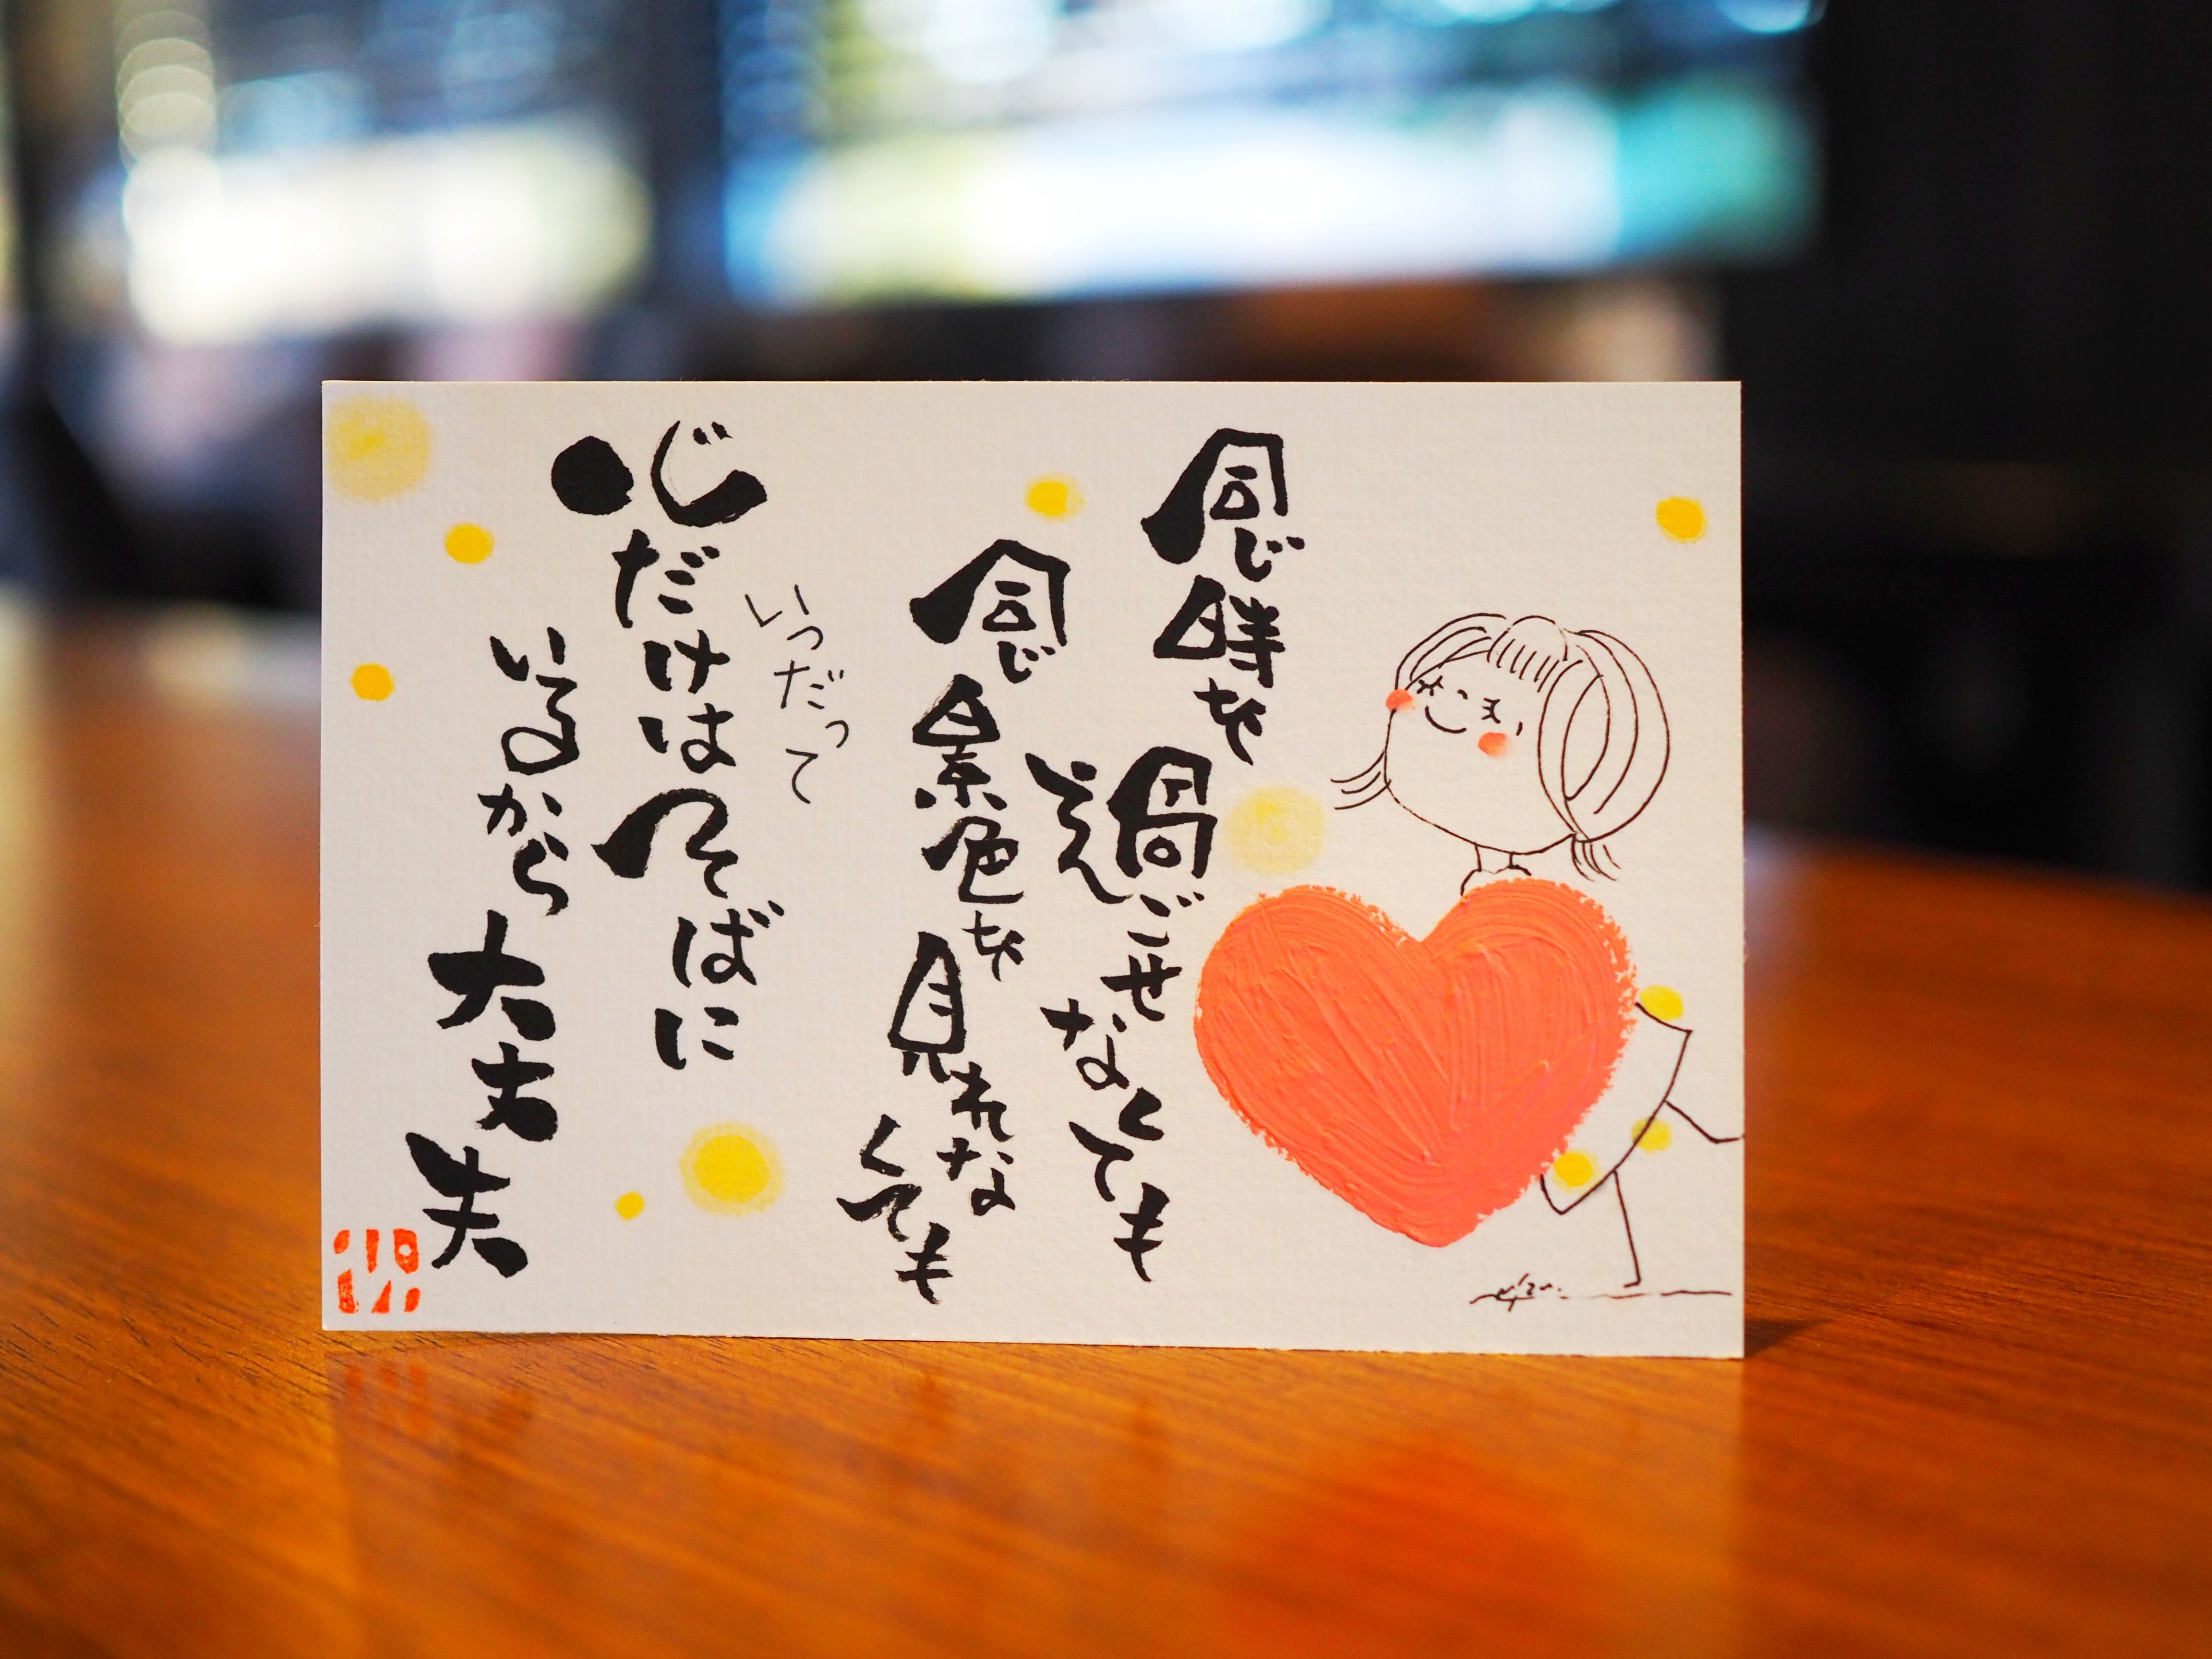 同じ時を
過ごせなくても
同じ景色を
見れなくても
いつだって
心だけはそばに
いるから大丈夫